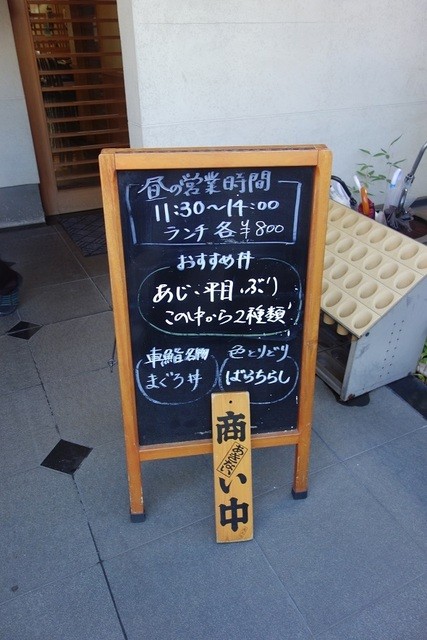 昼の営業時間
11:30～14:00
ランチ 各 ¥800
おすすめ丼
あじ、平目、ぶり
この中から2種類!
色とりどり
まぐろ丼
ばらちらし
商い中